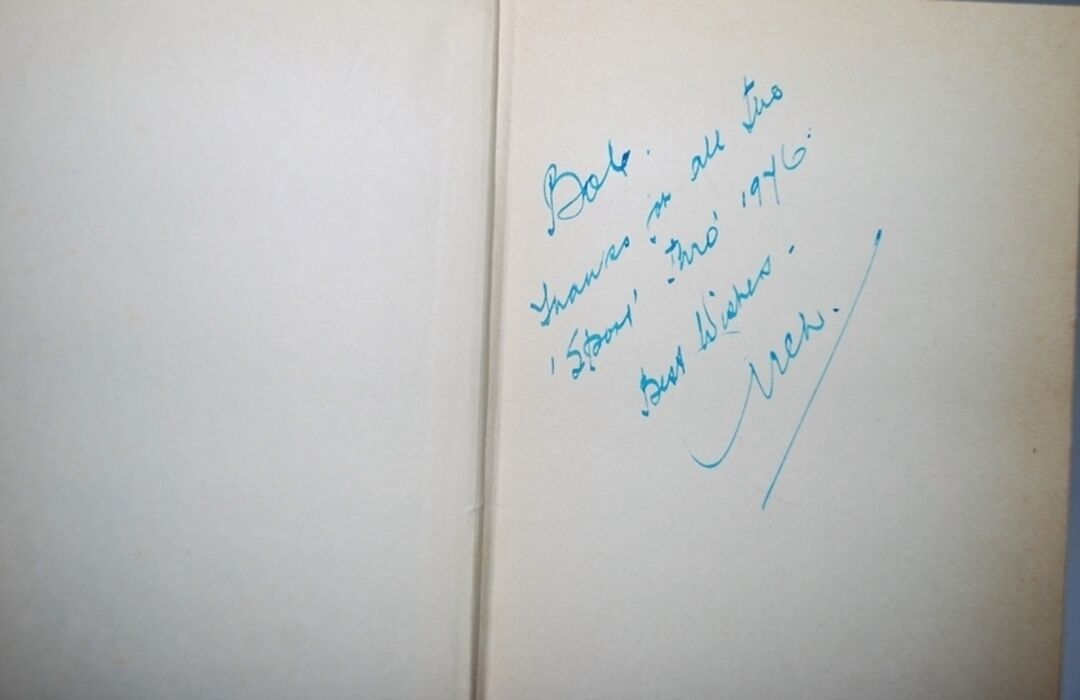 Bob.
Thanks for all the
'Sport' thro' 1946.
Best Wishes.